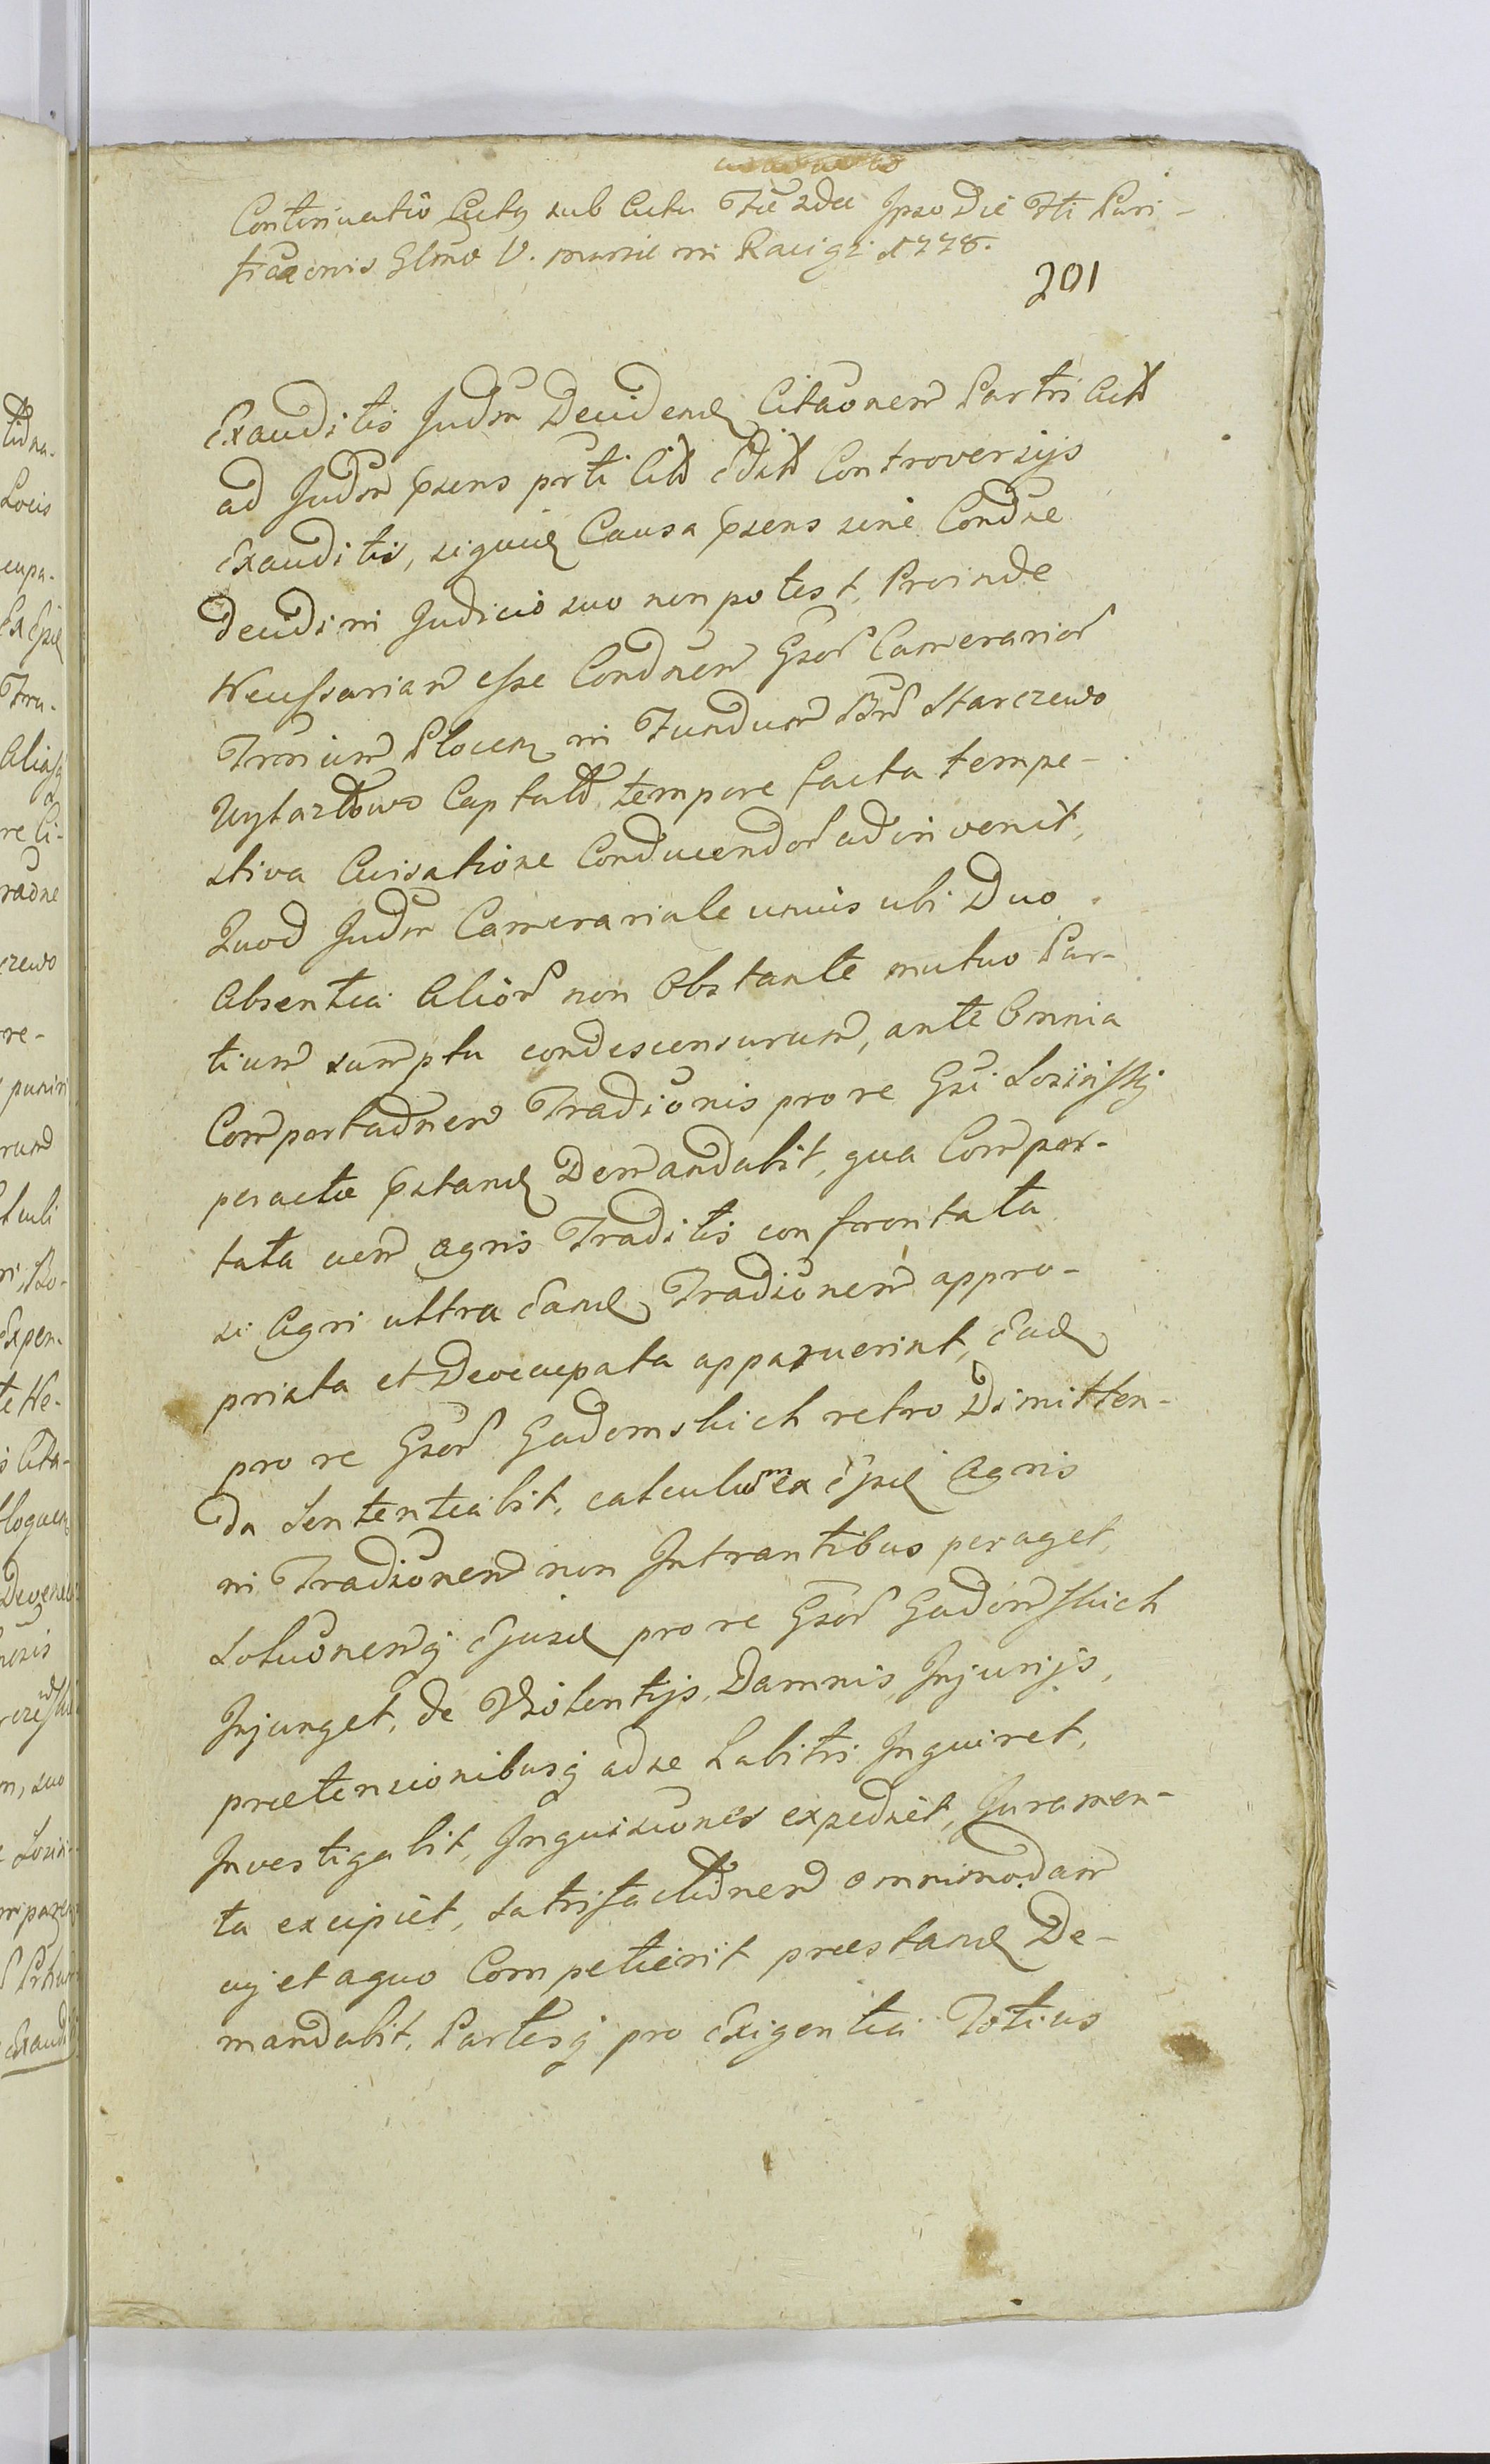 Continuatio Actus sub Actu Fræ 2da Ipso Die Fti Puri-
ficaonis Glmæ V. mariæ in Raciąz: 1778.
201
Exauditis Judm Decidend Citaonem Partis Act
ad Judm pnens prti Cit Edit Controversijs
Exauditis, siquid Causa pnens sine Condne
decidi in Judicio suo non potest, Proinde
Necessariam esse Condnem Gsor Camerarior
Trrium Plocen in Fundum Bnr Starczewo
Wytazdowo Captato tempore facta tempe-
stiva Avisatione Conducendor adinvenit,
Quod Judm Camerariale unius ubi Duo
Absentia Alior non Obstante mutuo Par-
tium sumptu condescensurum, ante Omnia
Comportaonem Tradionis pro re Gsi Losinskj
peractæ pstand Demandabit, qua Compor-
tata cum agris Traditis confrontata
si Agri ultra Eand Tradionem appro-
priata et Deoccupata apparuerint, Ead
pro re Gsor Gadomskich retro Dimitten-
da Sententiabit, calculum ex Ejsd Agris
in Tradionem non Intrantibus peraget,
Solutionemq Ejusd pro re Gsor Gadomskich
Injunget, de Violentijs, Damnis, Injurijs,
prætensionibusq ad se habitis Inquiret,
Investigabit, Inquisiones expediet, Juramen-
ta excipiet, satisfactionem omnimodam
cuj et a quo Competierit præstand De-
mandabit, Partesq pro Exigentia Totius